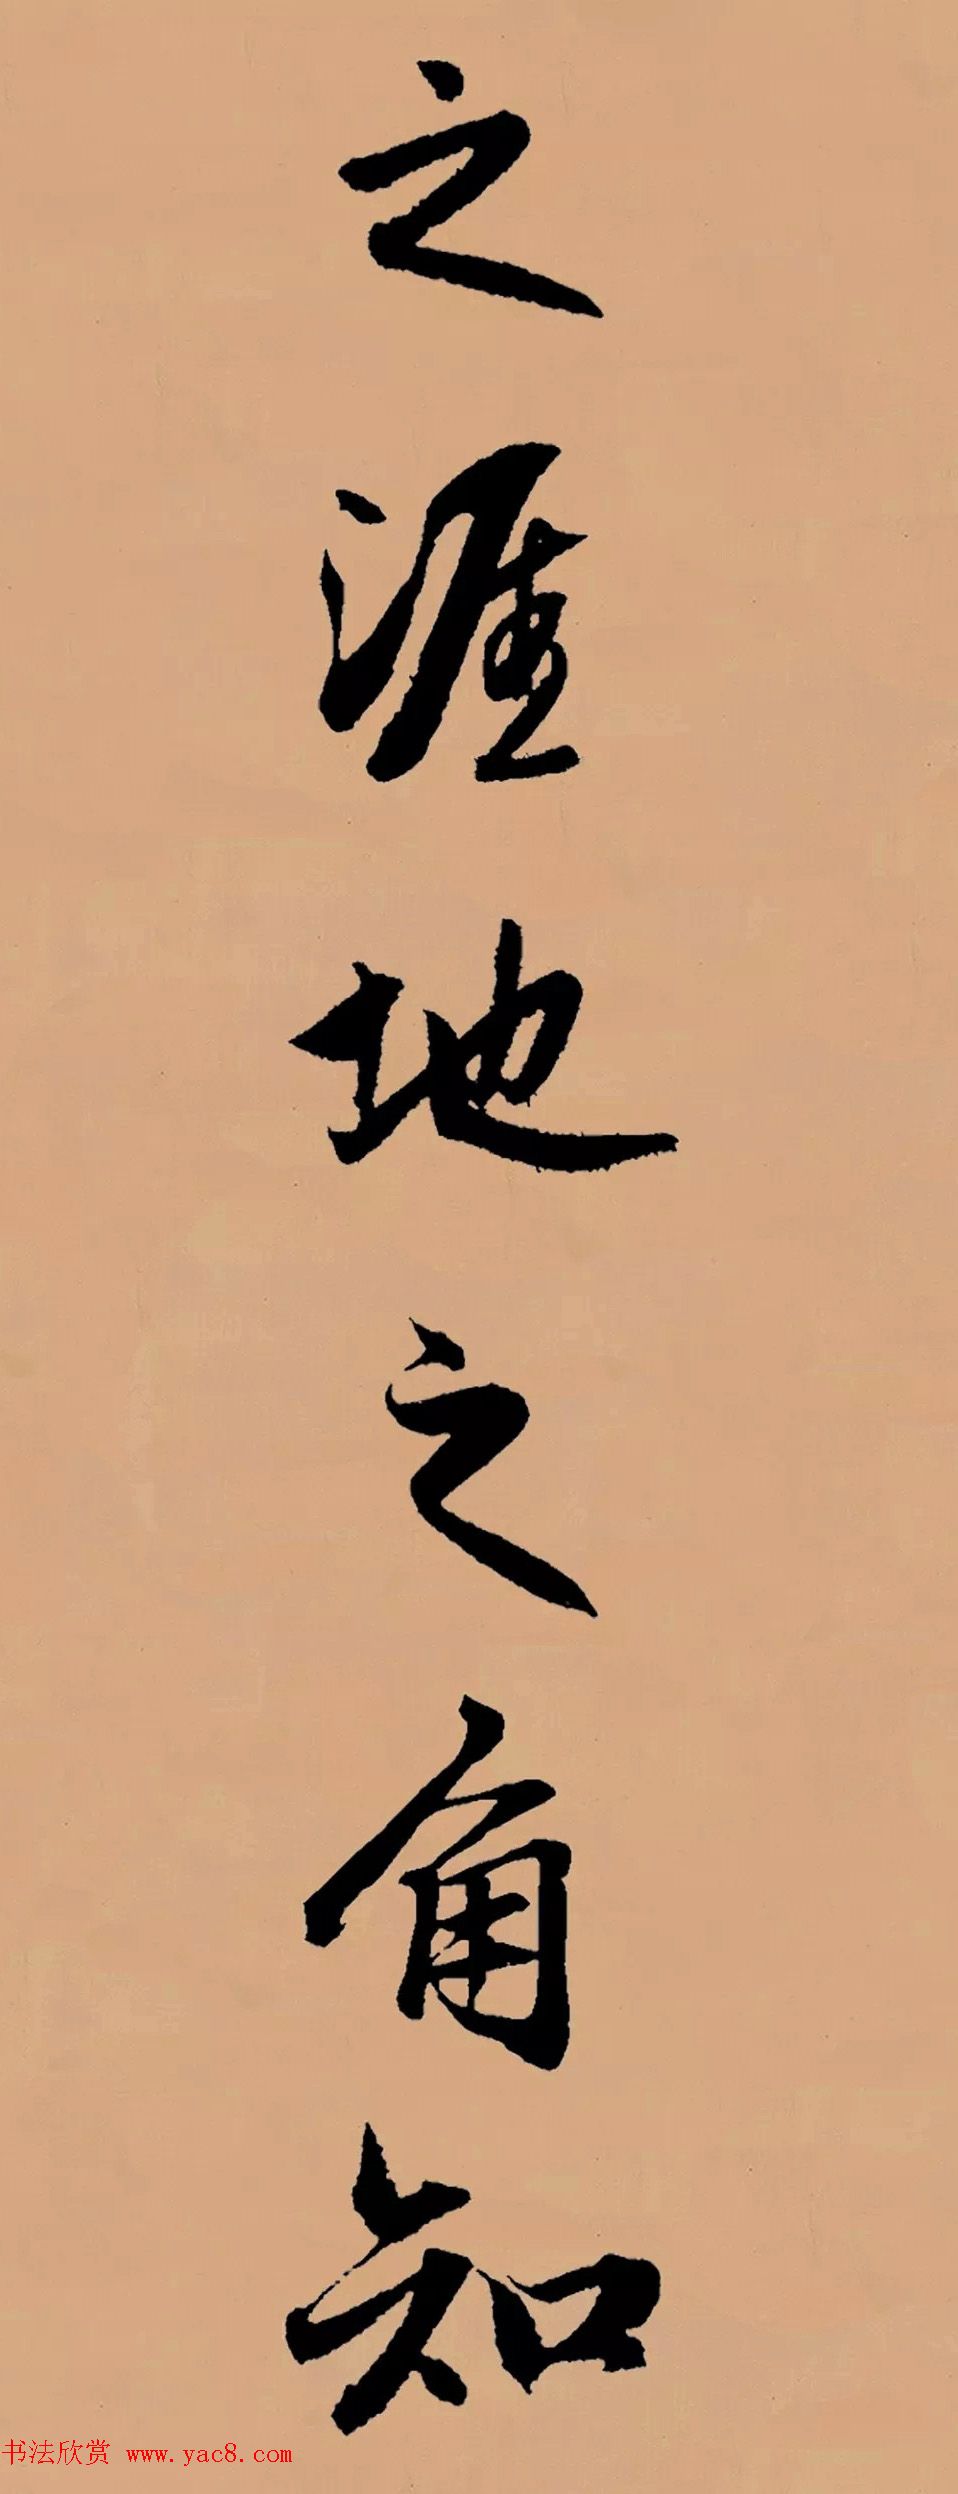 之涯地之角知
书法欣赏 www.yac8.com